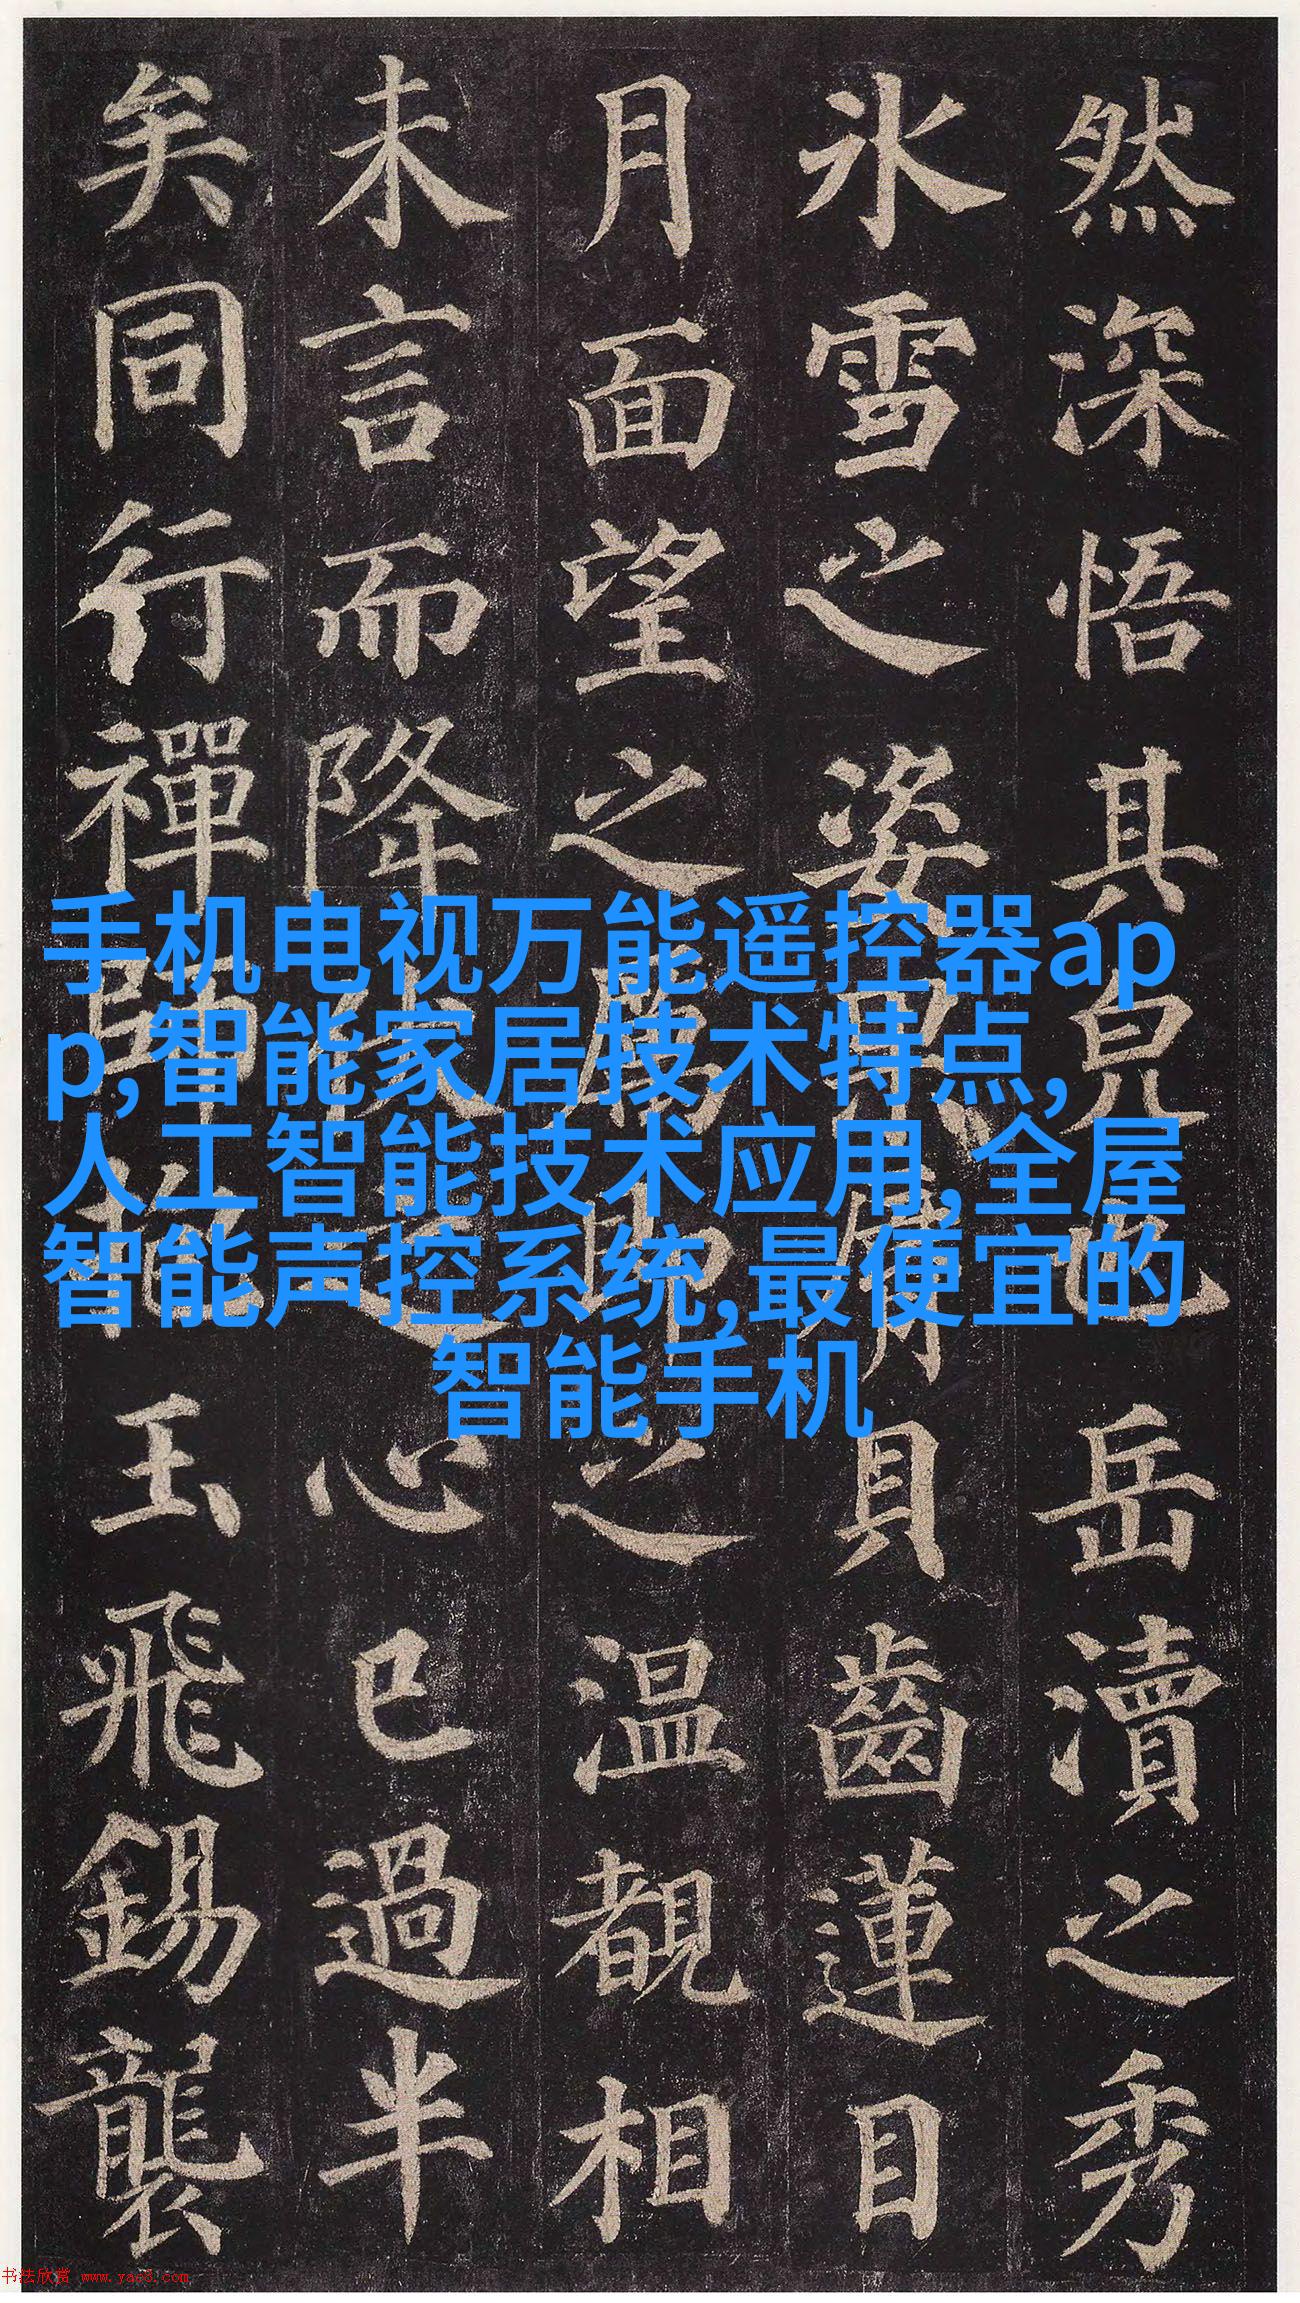 然深悟其皃也岳瀆之秀
氷雪之姿脣貝齒蓮目
月面望之厲即之温覩相
未言而降伏之心已過半
矣同行禪師抱玉飛錫襲
手机电视万能遥控器ap
p,智能家居技术特点,
人工智能技术应用,全屋
智能声控系统,最便宜的
智能手机
书法欣赏 www.yac8.com